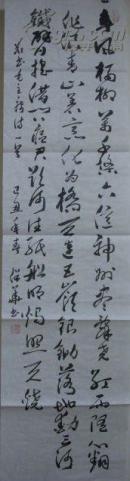 春風楊柳萬千條六億神州盡舜堯紅雨隨心翻
作浪青山着意化為橋天連五嶺銀鋤落地動三河
鐵臂搖借問瘟君欲何往紙船明燭照天燒
書毛主席诗一首 己丑年春 華書